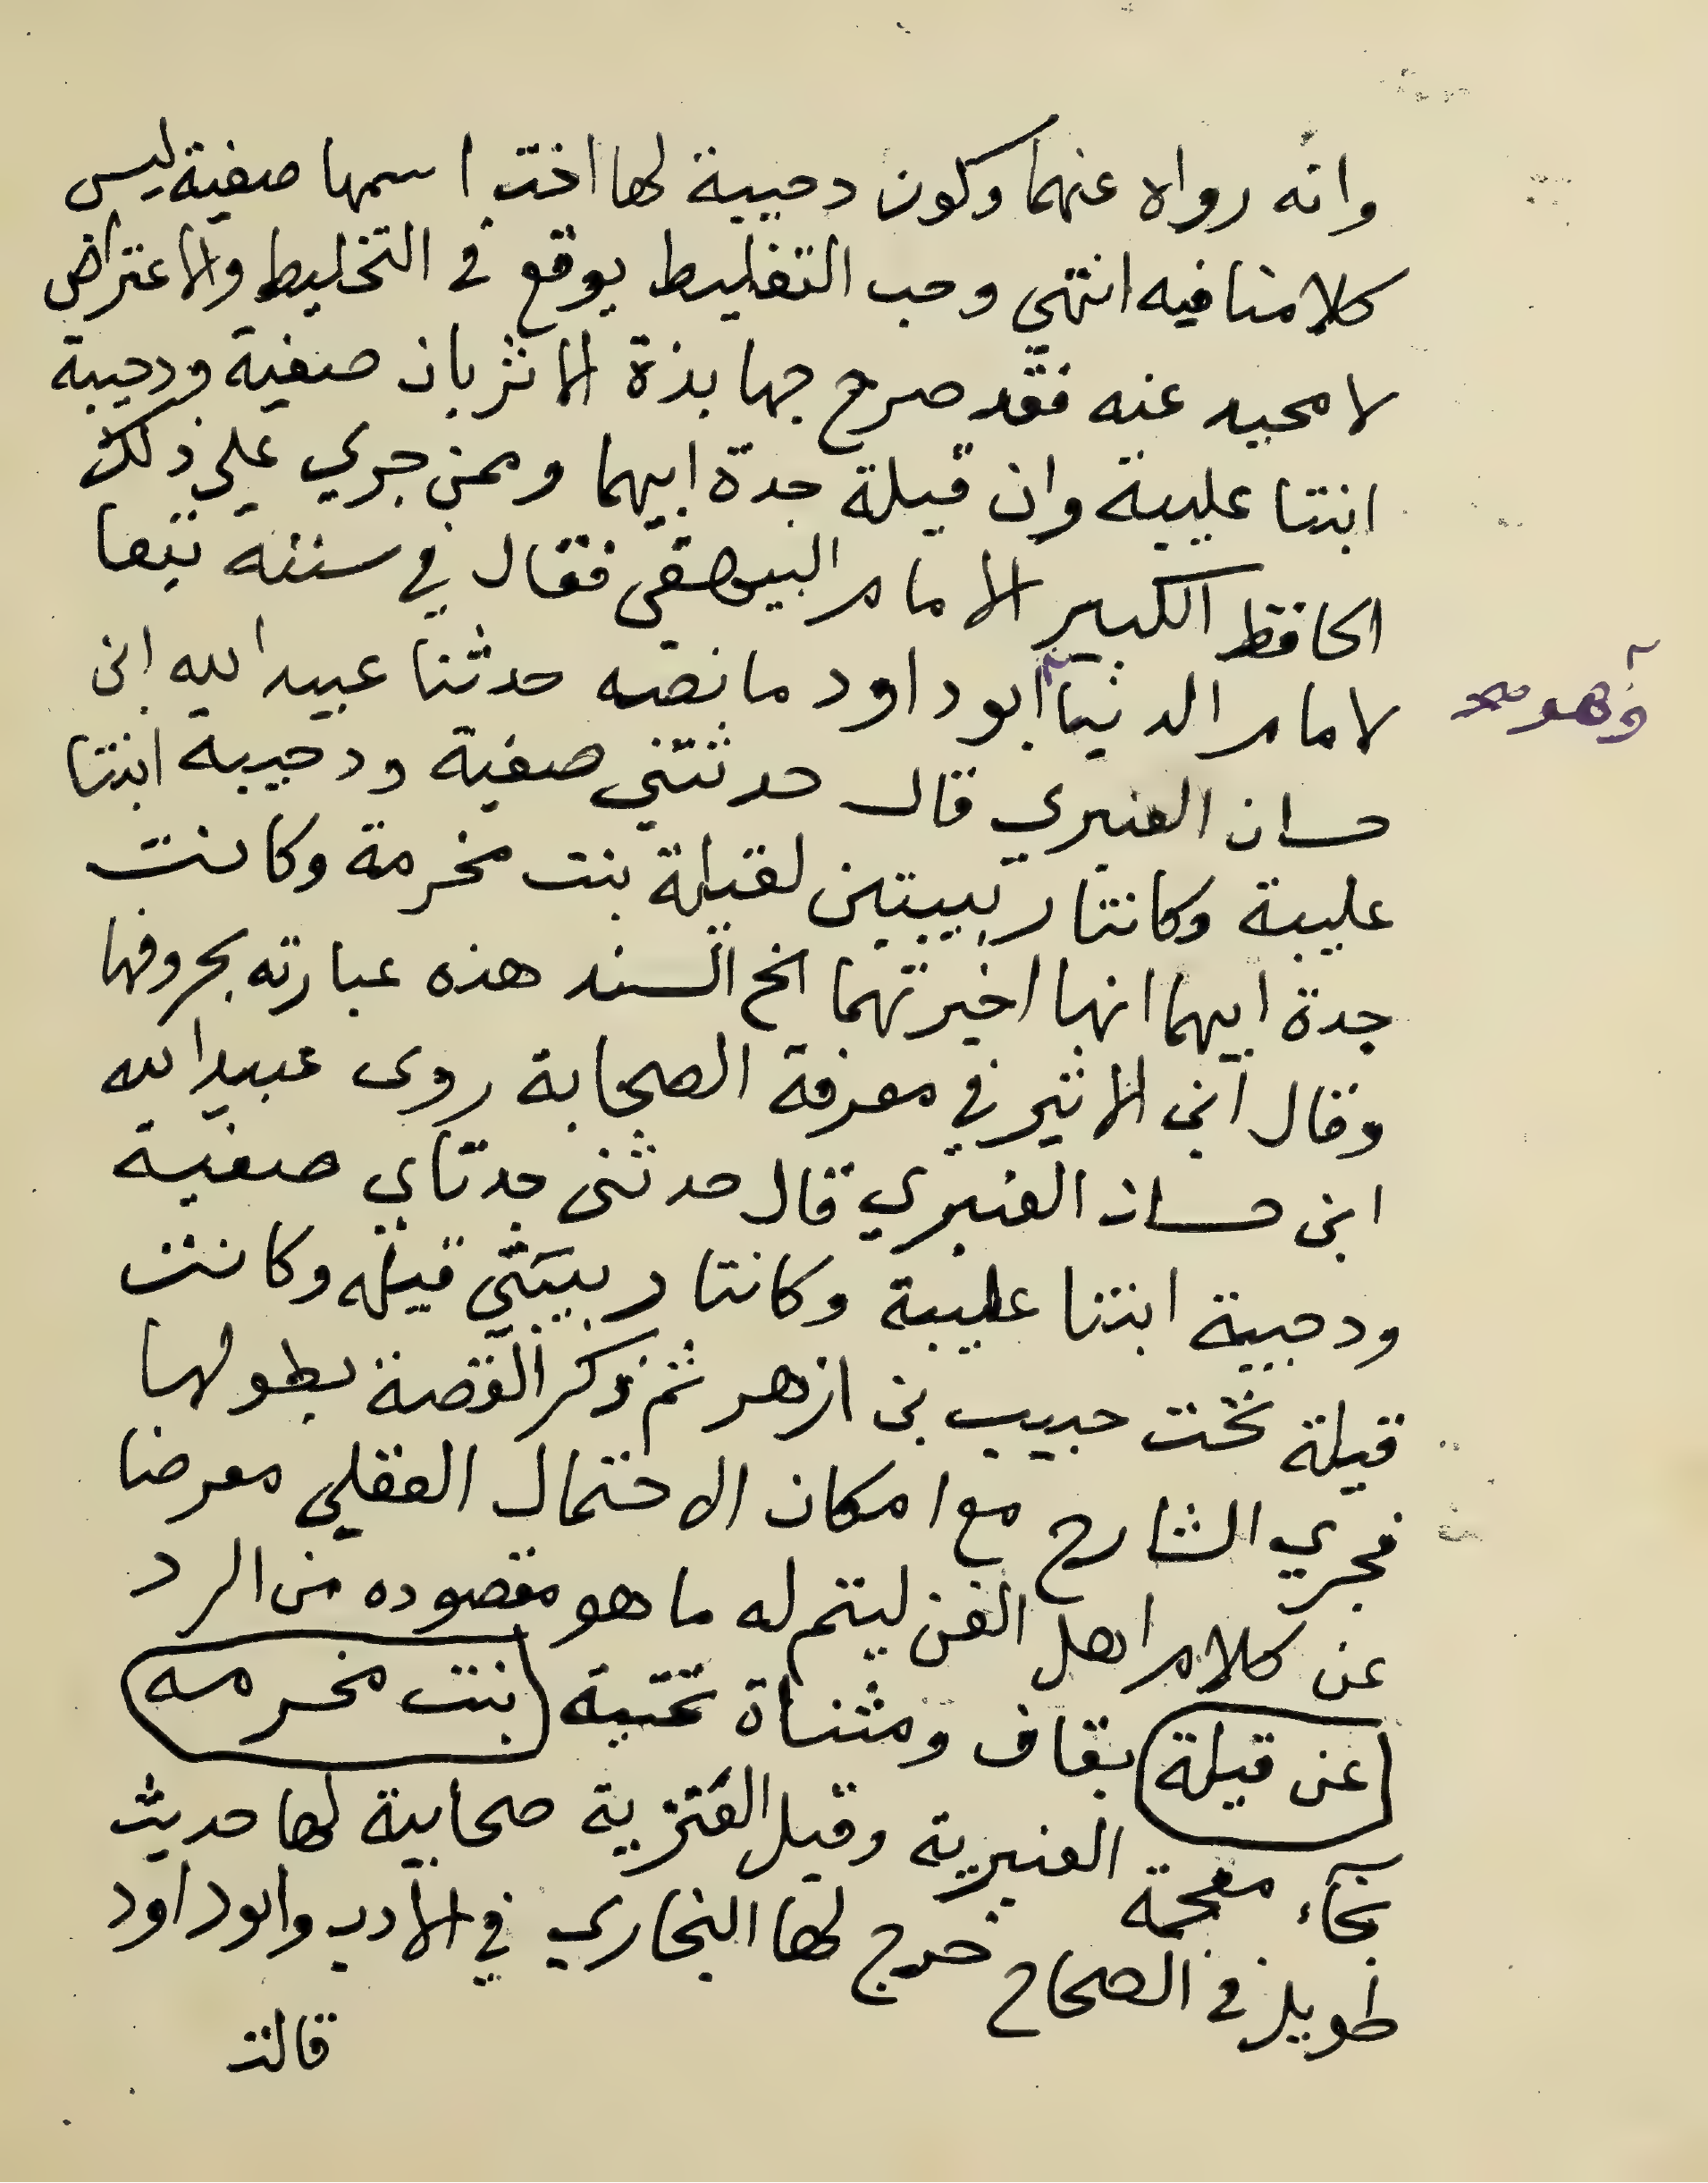 وانه رواه عنهما وكون دحيبة لها اخت اسمها صفية ليس
كلا منافيه انتهي وحب التغليط يوقع في التخليط والاعتراض
لا محيد عنه فقد صرح جهابذة الاثر بان صفية ودحيبة
ابنتا عليبة وان قيلة جدة ابيهما وممن جري علي ذلك
الحافظ الكبير الامام البيهقي فقال في سننه تبعا
لامام الدنيا ابو داود ما نصه حدثنا عبيد الله ابن
وهو
حسان العنبري قال حدثتني صفية ودحيبة ابنتا
عليبة وكانتا ربيبتين لقيلة بنت مخرمة وكانت
جدة ابيهما انها اخبرتهما الخ السند هذه عبارته بحروفها
وقال ابن الاثير في معرفة الصحابة روى عبيد الله
ابن حسان العنبري قال حدثني جدتاي صفية
ودحيبة ابنتا عليبة وكانتا ربيبتي قيلة وكانت
قيلة تحت حبيب بن ازهر ثم ذكر القصة بطولها
فجري الشارح مع امكان الاحتمال العقلي معرضا
عن كلام اهل الفن ليتم له ما هو مقصوده من الرد
عن قيلة بقاف ومثناة تحتية بنت مخرمه
بخآء معجمة العنبرية وقيل العنزية صحابية لها حديث
طويل في الصحاح خرج لها البخاري في الادب وابو داود
قالت